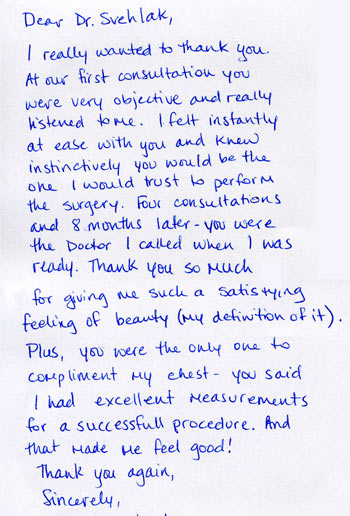 Dear Dr. Svehlak,
I really wanted to thank you.
At our first consultation you
were very objective and really
listened to me. I felt instantly
at ease with you and knew
instinctively you would be the
one I would trust to perform
the surgery. Four consultations
and 8 months later - you were
the Doctor I called when I was
ready. Thank you so much
for giving me such a satisfying
feeling of beauty (my definition of it).
Plus, you were the only one to
compliment my chest - you said
I had excellent measurements
for a successfull procedure. And
that made me feel good!
Thank you again,
Sincerely,